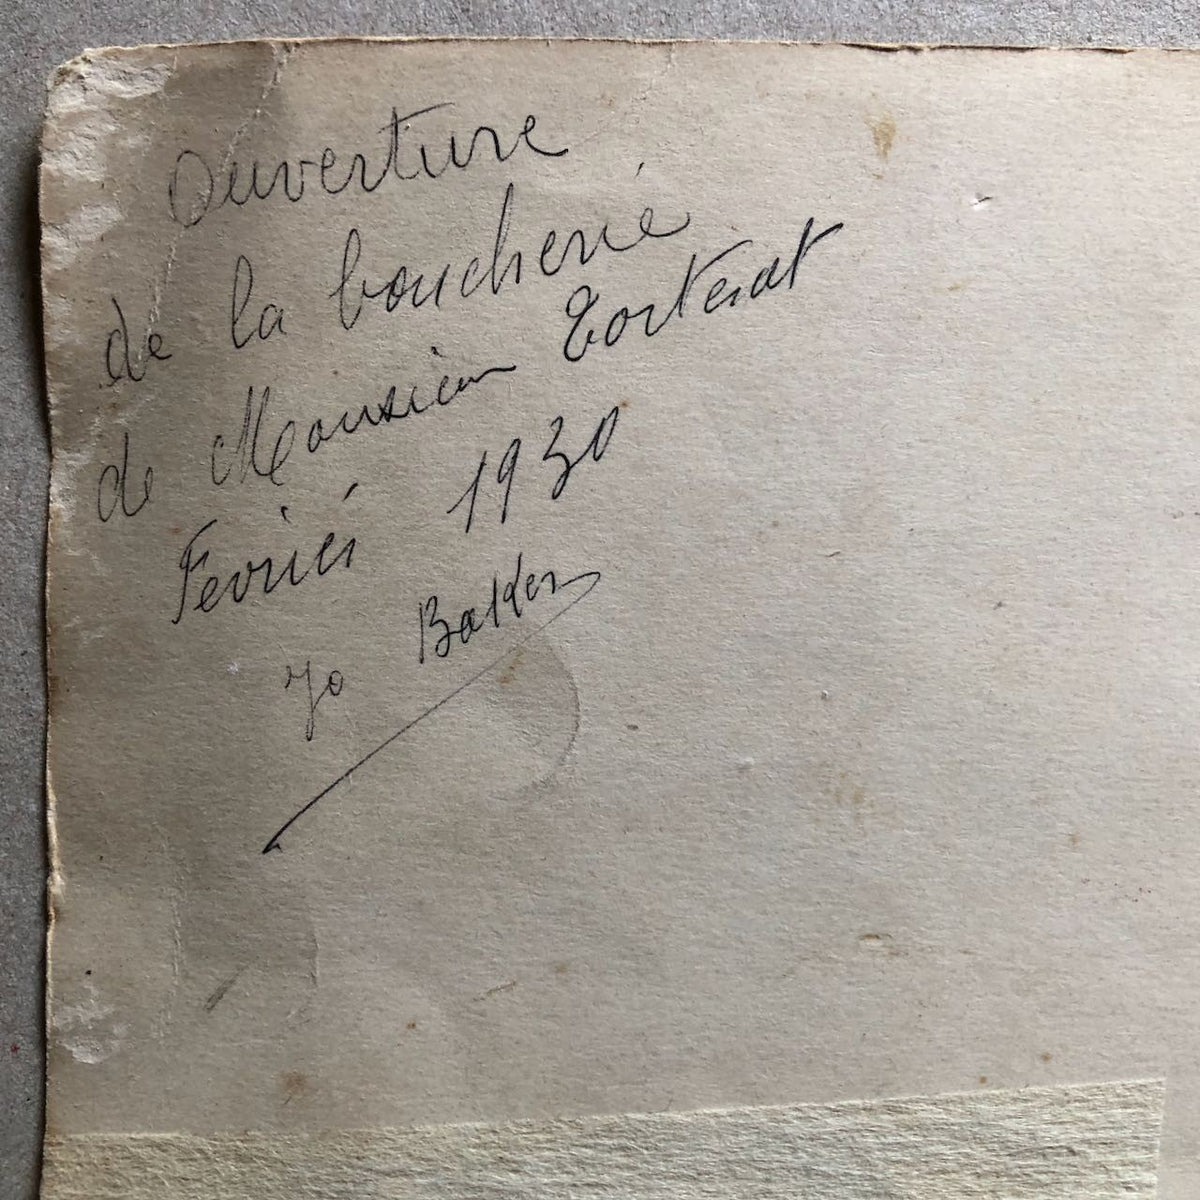 Ouverture
de la boucherie
de Monsieur Torterat
Fevrier 1930
Jo Bakker